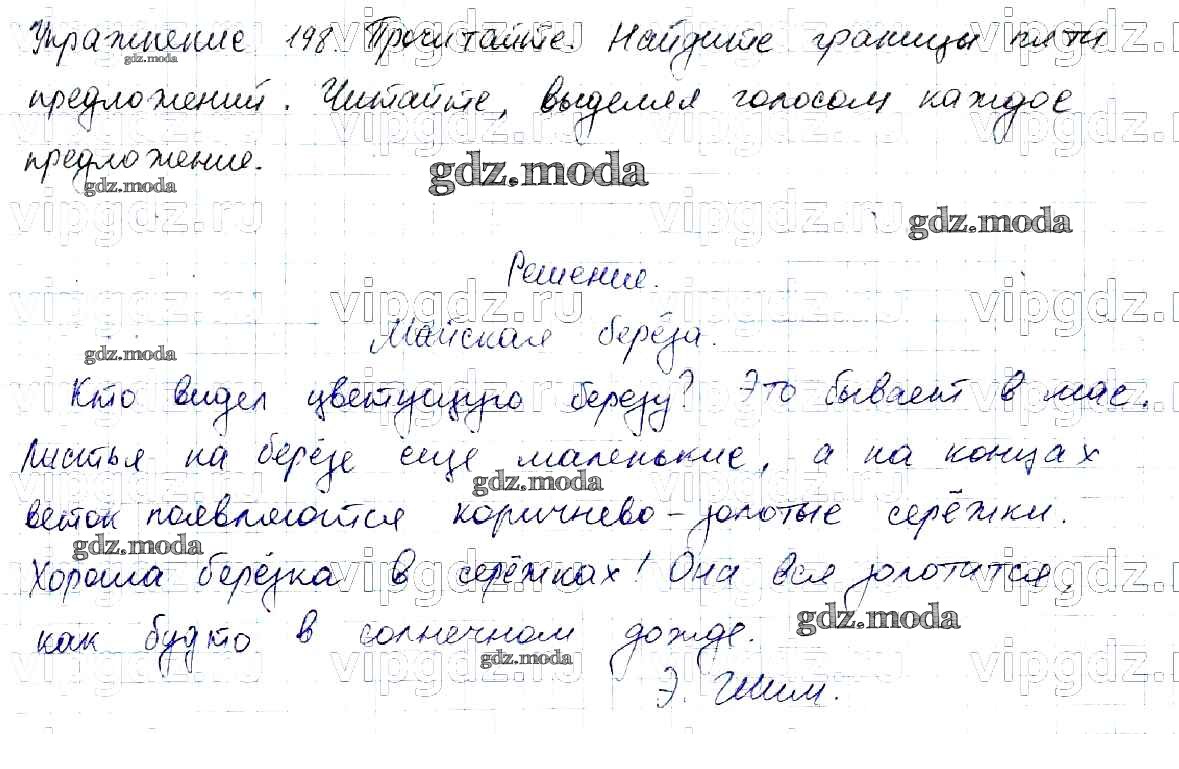 Упражнение 198. Прочитайте. Найдите границы пяти
предложений. Читайте, выделяя голосом каждое
предложение.
Решение.
Майская берёза.
Кто видел цветущую березу? Это бывает в мае.
Листья на берёзе еще маленькие, а на концах
веток появляются коричнево-золотые серёжки.
Хороша берёзка в серёжках! Она вся золотится,
как будто в солнечном дожде.
Э. Шим.
gdz.moda
vipgdz.ru